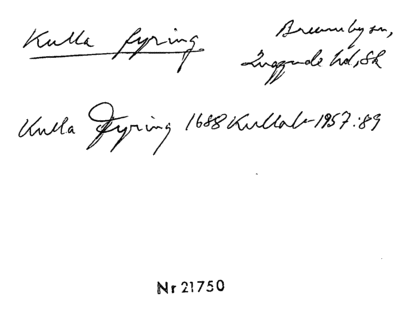 Kulla fyring.
Brunnby sn,
Luggude hd, Sk
Kulla Fyring 1688 Kullab 1957:89
Nr 21750